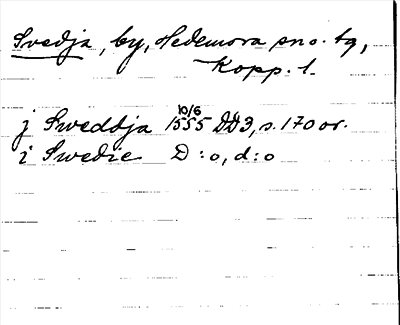 Svedja, by, Hedemora sno. tg,
Kopp. l.
j Sweddja 10/6 1555 DD3, s. 170 or.
i Swedie D:o, d:o